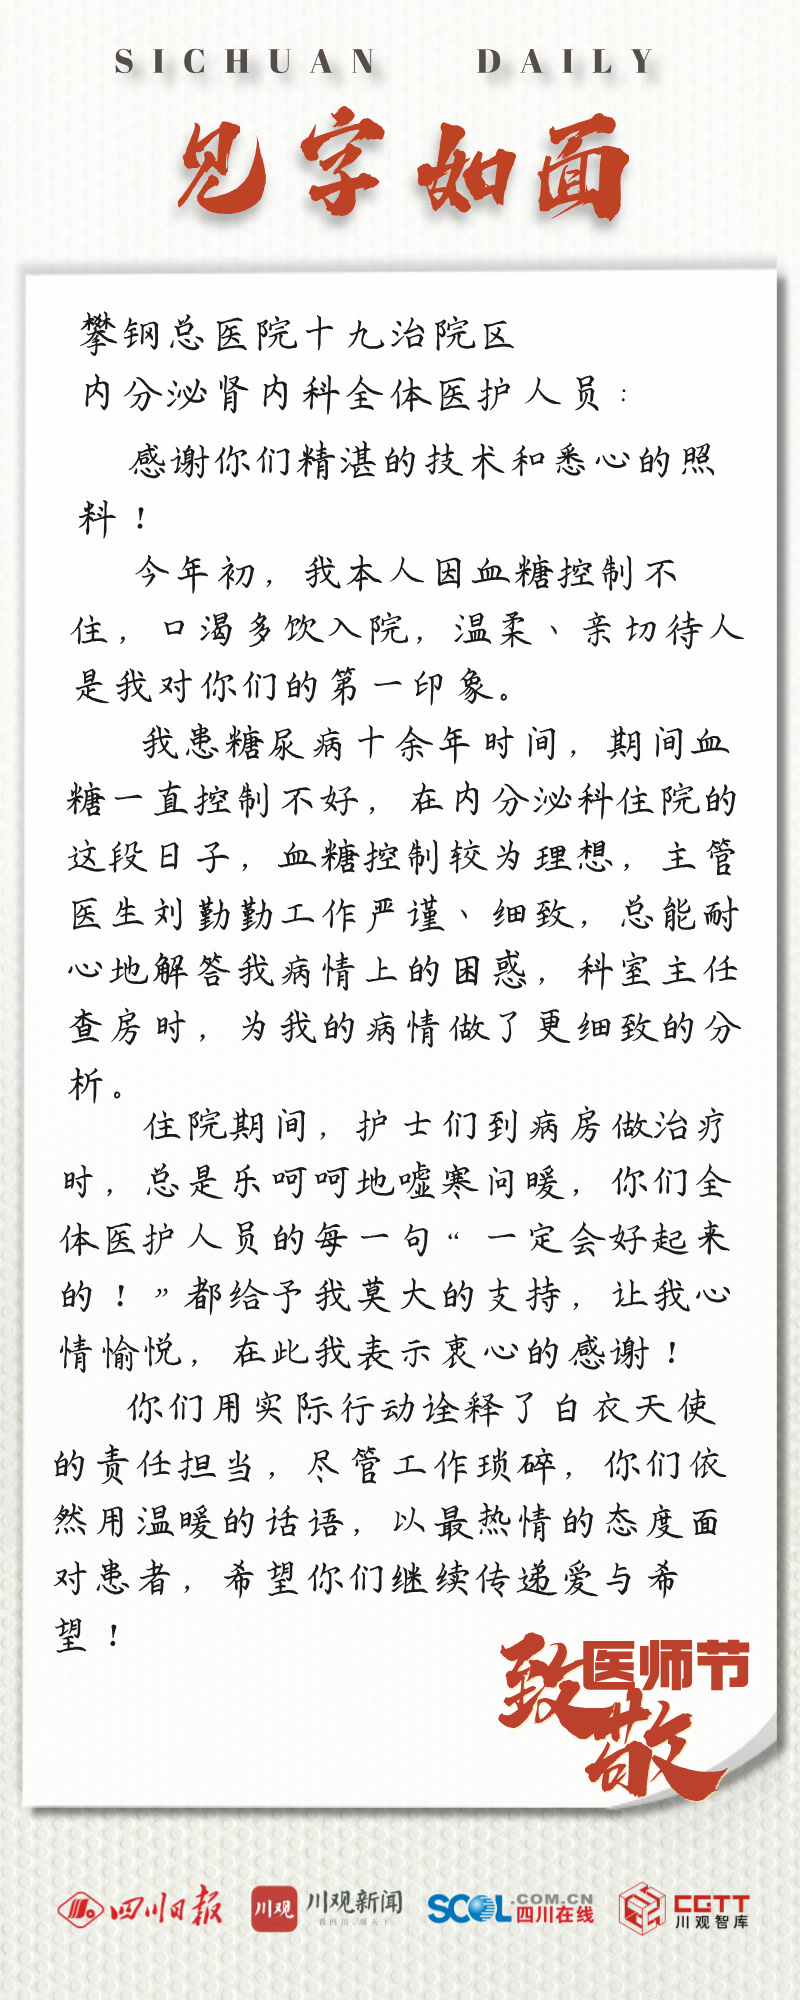 SICHUAN DAILY
见字如面
攀钢总医院十九治院区
内分泌肾内科全体医护人员：
感谢你们精湛的技术和悉心的照
料！
今年初，我本人因血糖控制不
住，口渴多饮入院，温柔、亲切待人
是我对你们的第一印象。
我患糖尿病十余年时间，期间血
糖一直控制不好，在内分泌科住院的
这段日子，血糖控制较为理想，主管
医生刘勤勤工作严谨、细致，总能耐
心地解答我病情上的困惑，科室主任
查房时，为我的病情做了更细致的分
析。
住院期间，护士们到病房做治疗
时，总是乐呵呵地嘘寒问暖，你们全
体医护人员的每一句“一定会好起来
的！”都给予我莫大的支持，让我心
情愉悦，在此我表示衷心的感谢！
你们用实际行动诠释了白衣天使
的责任担当，尽管工作琐碎，你们依
然用温暖的话语，以最热情的态度面
对患者，希望你们继续传递爱与希
望！
致敬医师节
四川日报
川观 川观新闻
看四川，观天下
SCOL.COM.CN
四川在线
CGTT
川观智库